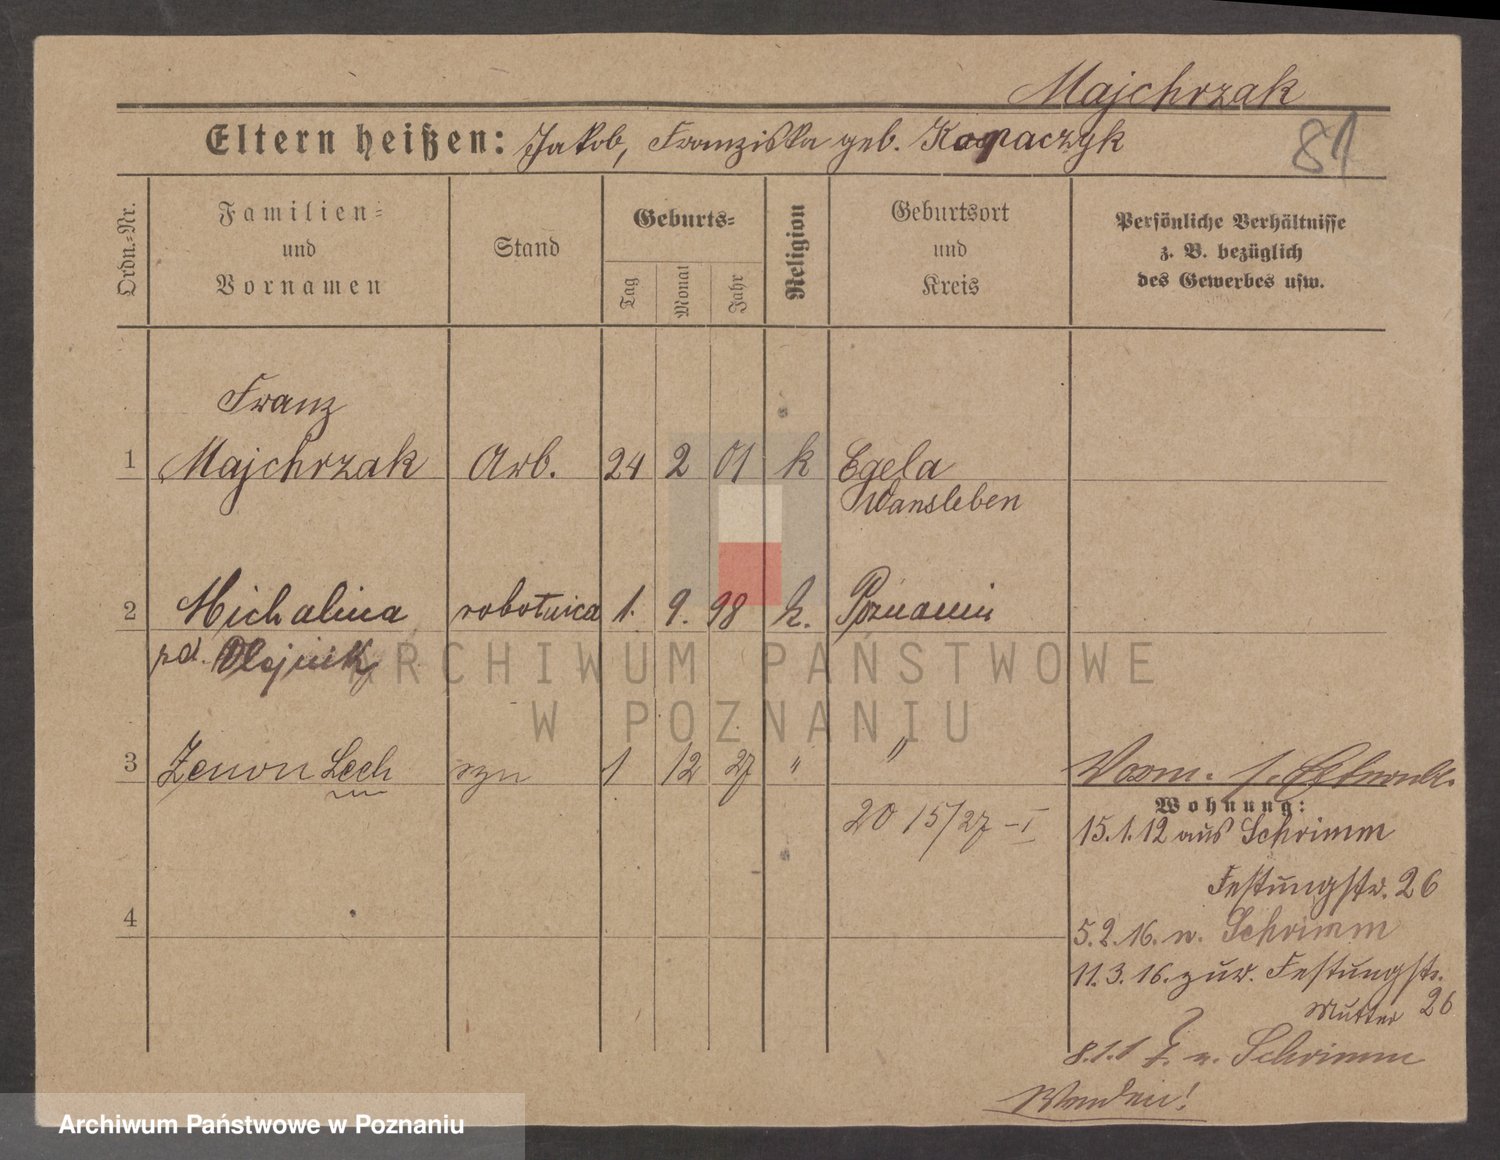 Majchrzak
81
Eltern heißen: Jakob, Franziska geb. Kopaczyk
Ordn.=Nr.
Familien=
und
Vornamen
Stand
Geburts=
Tag
Monat
Jahr
Religion
Geburtsort
und
Kreis
Persönliche Verhältnisse
z. B. bezüglich
des Gewerbes usw.
Franz
1 Majchrzak Arb. 24 2 01 k Egeln
Wansleben
2 Michalina robotnica 1. 9. 98 k. Poznaniu
pd. Olejnik
3 Zenon Lech syn 1 12 27 " "
20 15/27 - I
Wohnung:
15.1.12 aus Schrimm
Festungstr. 26
4
5.2.16. n. Schrimm
11.3.16. zur. Festungstr.
Mutter 26
n. Schrimm
ARCHIWUM PAŃSTWOWE
W POZNANIU
Archiwum Państwowe w Poznaniu